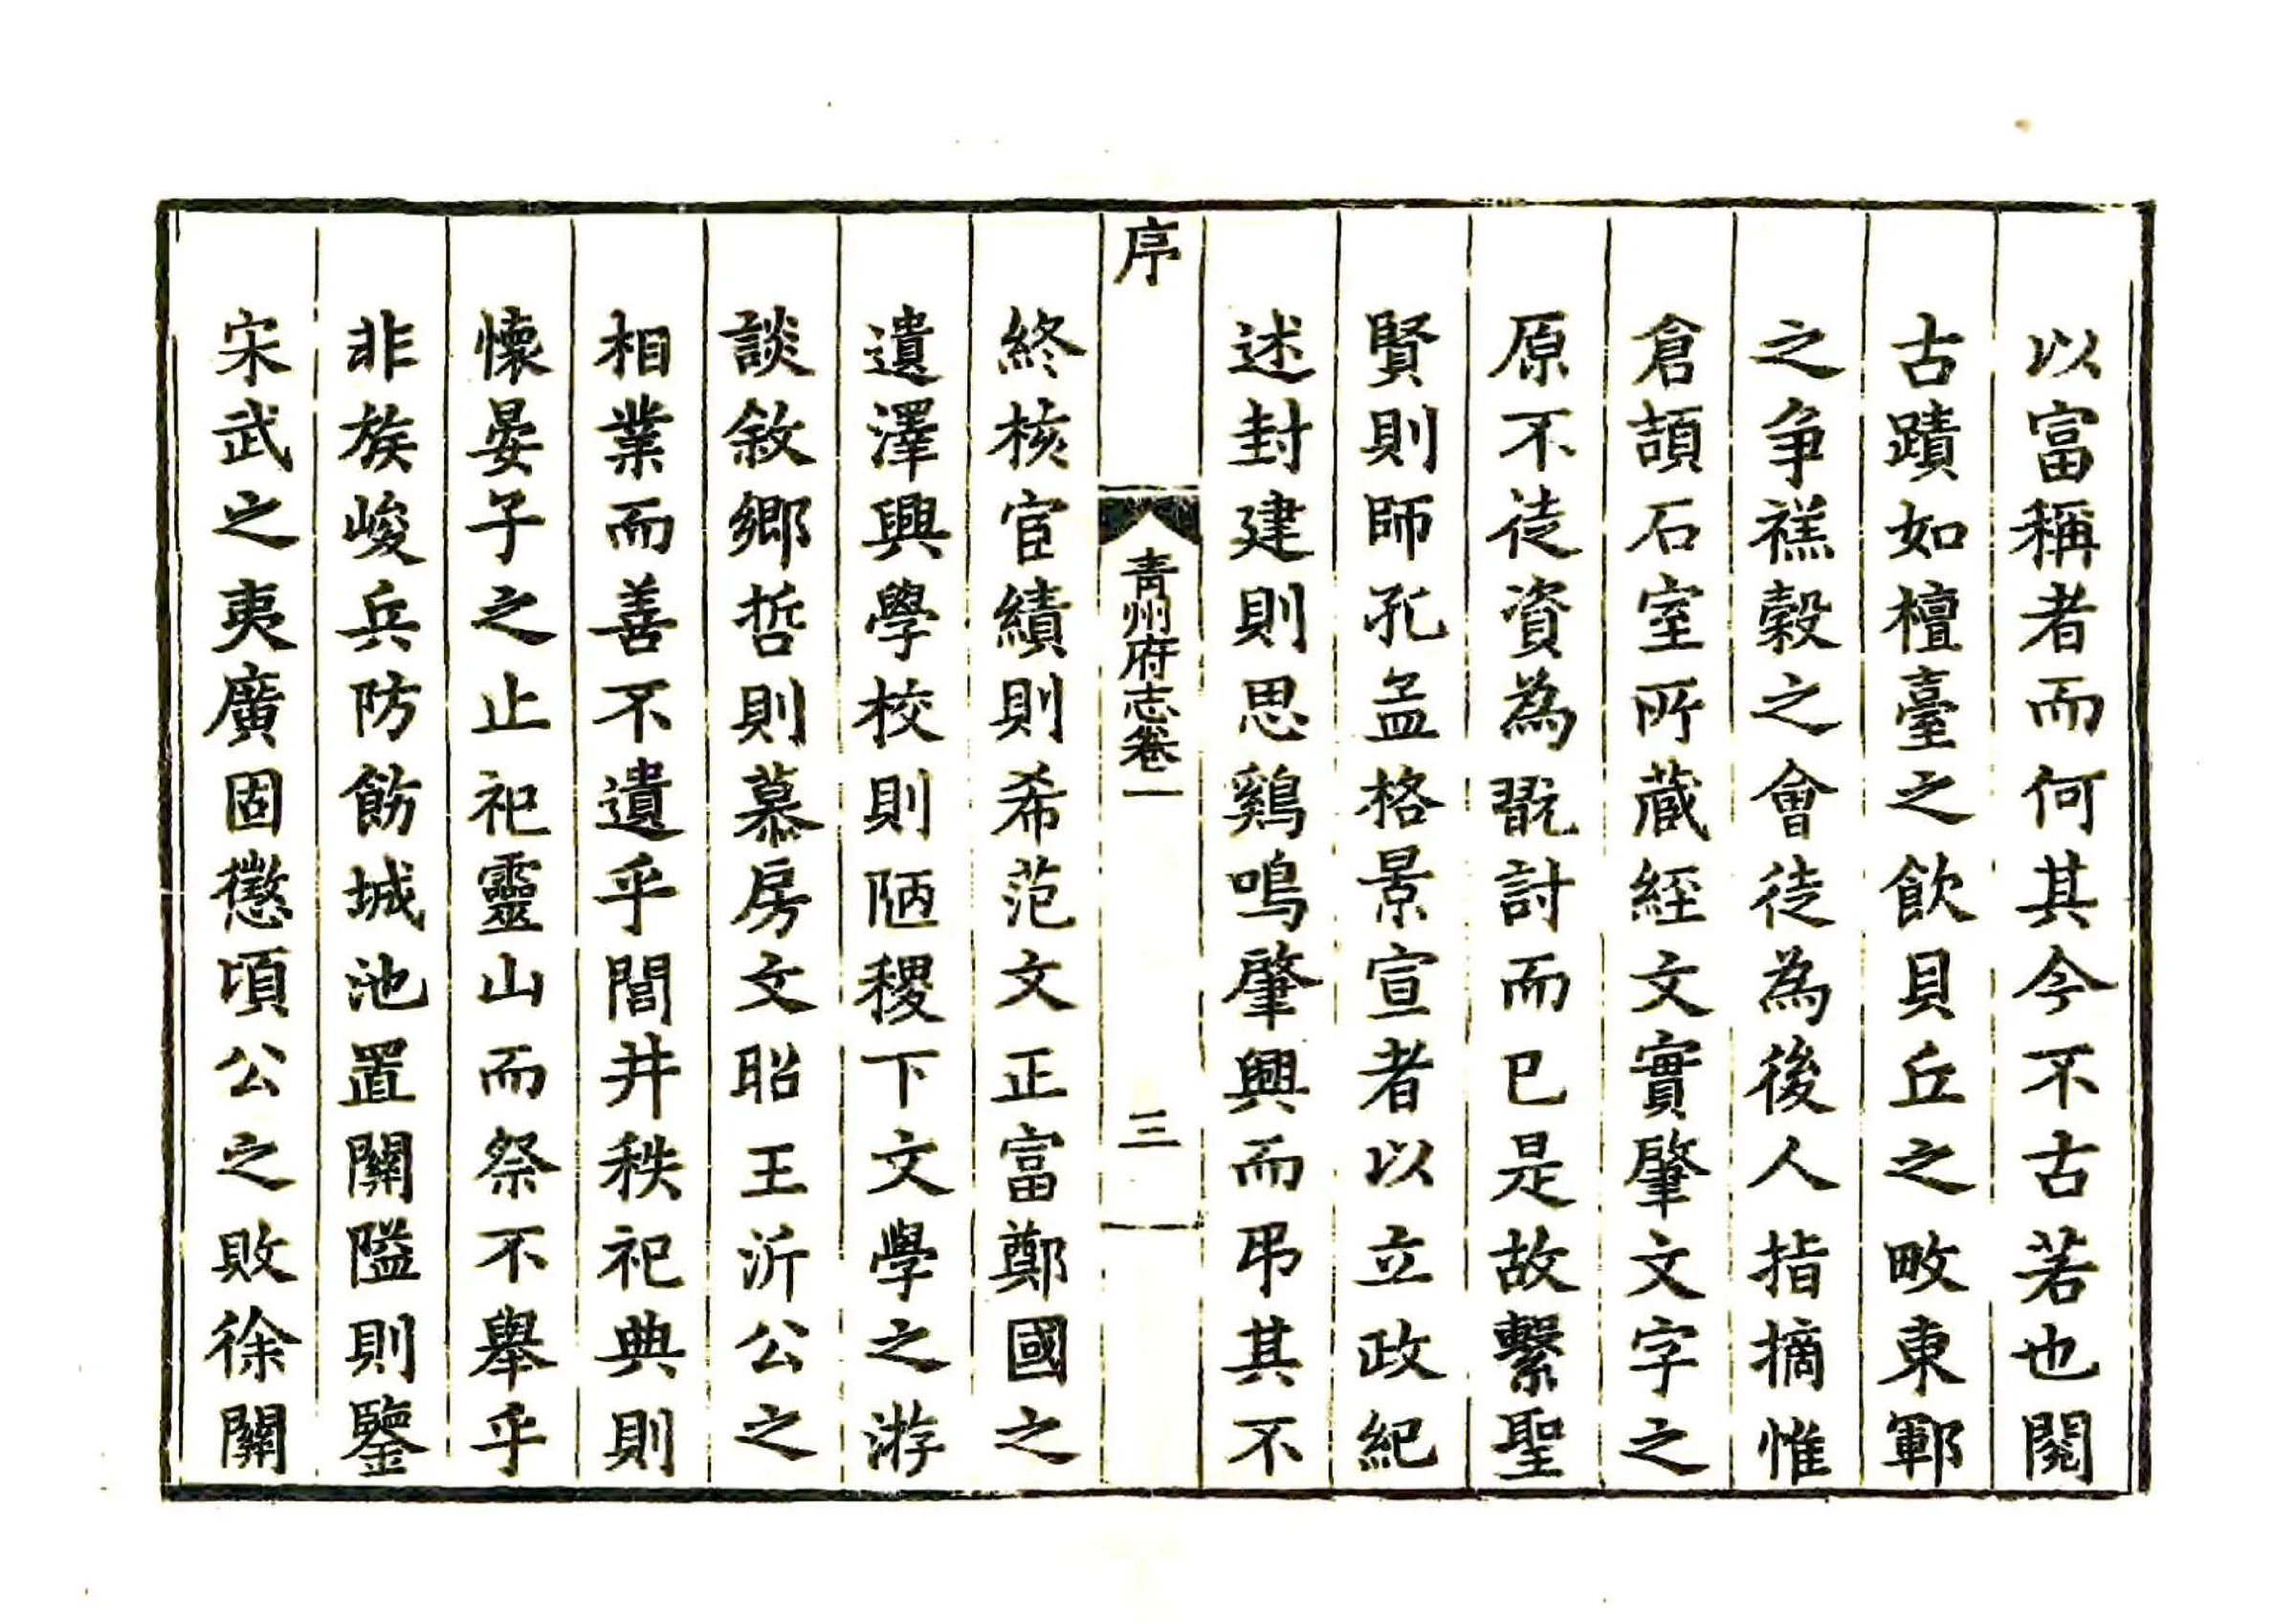 以富稱者而何其今不古若也閱
古蹟如檀臺之飲貝丘之畋東鄆
之爭禚穀之會徒為後人指摘惟
倉頡石室所藏經文實肇文字之
原不徒資為翫討而已是故繫聖
賢則師孔孟格景宣者以立政紀
述封建則思鷄鳴肇興而弔其不
序
青州府志卷一
三
終核宦績則希范文正富鄭國之
遺澤興學校則陋稷下文學之游
談敘鄉哲則慕房文昭王沂公之
相業而善不遺乎閭井秩祀典則
懷晏子之止祀靈山而祭不舉乎
非族峻兵防飭城池置關隘則鑒
宋武之夷廣固懲頃公之敗徐關